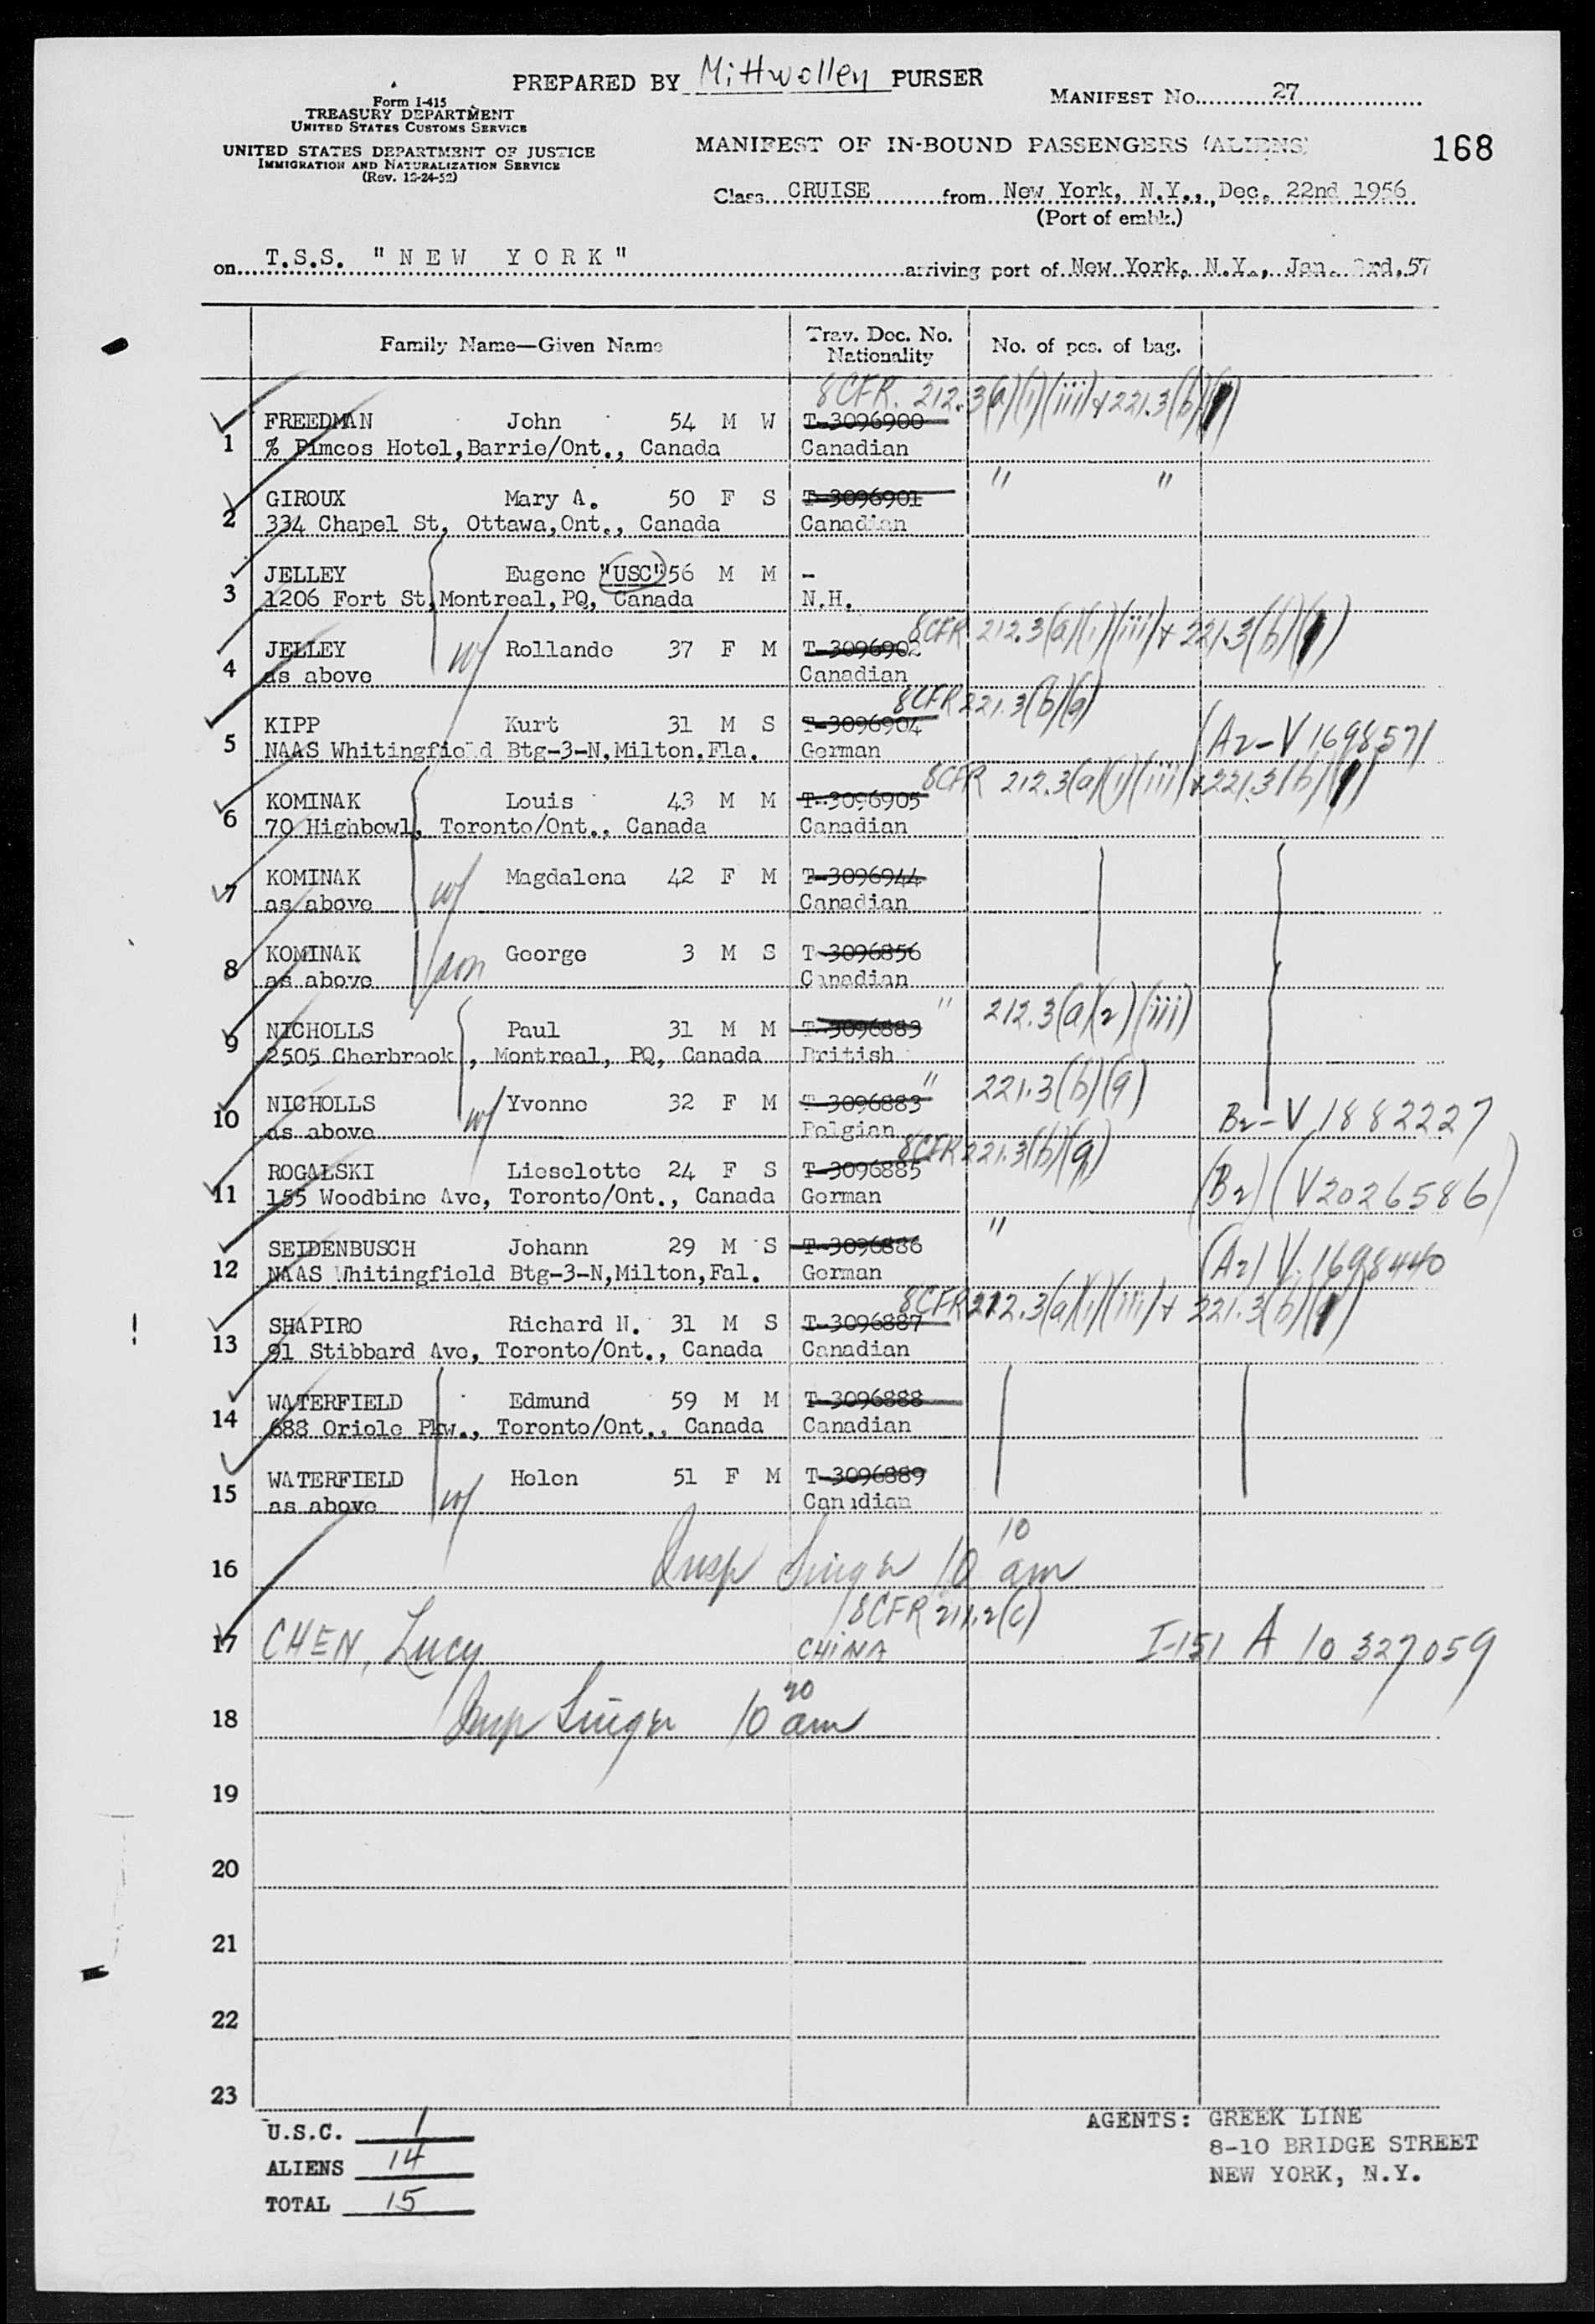 PREPARED BY Mittwollen PURSER
Form I-415
TREASURY DEPARTMENT
UNITED STATES CUSTOMS SERVICE
UNITED STATES DEPARTMENT OF JUSTICE
IMMIGRATION AND NATURALIZATION SERVICE
(Rev. 12-24-52)
MANIFEST NO. 27
MANIFEST OF IN-BOUND PASSENGERS (ALIENS)
168
Class CRUISE from New York, N.Y., Dec. 22nd 1956
(Port of embk.)
on T.S.S. "NEW YORK" arriving port of New York, N.Y., Jan. 3rd, 57
Family Name—Given Name Trav. Doc. No. Nationality No. of pcs. of bag.
8CFR. 212.3(a)(1)(iii) + 221.3(b)
1 FREEDMAN John 54 M W T-3096900
% Pimcos Hotel, Barrie/Ont., Canada Canadian
2 GIROUX Mary A. 50 F S T-3096901 " "
334 Chapel St, Ottawa, Ont., Canada Canadian
3 JELLEY Eugene "USC" 56 M M -
1206 Fort St, Montreal, PQ, Canada N.H.
8CFR 212.3(a)(1)(iii) + 221.3(b)
4 JELLEY w/ Rollande 37 F M T-3096902
as above Canadian
8CFR 221.3(b)(9)
5 KIPP Kurt 31 M S T-3096904
NAAS Whitingfield Btg-3-N, Milton, Fla. German (A2-V1698571
8CFR 212.3(a)(1)(iii) + 221.3(b)
6 KOMINAK Louis 43 M M T-3096905
70 Highbowl, Toronto/Ont., Canada Canadian
7 KOMINAK w/ Magdalena 42 F M T-3096944
as above Canadian
8 KOMINAK son George 3 M S T-3096856
as above Canadian
" 212.3(a)(2)(iii)
9 NICHOLLS Paul 31 M M T-3096883
2505 Cherbrook, Montreal, PQ, Canada British
" 221.3(b)(9)
10 NICHOLLS w/ Yvonne 32 F M T-3096883
as above Belgian B2-V 1882227
8CFR 221.3(b)(9)
11 ROGALSKI Lieselotte 24 F S T-3096885
155 Woodbine Ave, Toronto/Ont., Canada German (B2) (V2026586)
"
12 SEIDENBUSCH Johann 29 M S T-3096886
NAAS Whitingfield Btg-3-N, Milton, Fal. German (A2) V. 1698440
8CFR 212.3(a)(1)(iii) + 221.3(b)
13 SHAPIRO Richard N. 31 M S T-3096887
91 Stibbard Ave, Toronto/Ont., Canada Canadian
14 WATERFIELD Edmund 59 M M T-3096888
688 Oriole Pkw., Toronto/Ont., Canada Canadian
15 WATERFIELD w/ Helen 51 F M T-3096889
as above Canadian
16 Insp Singer 10 10 am
8CFR 211.2(c)
17 CHEN, Lucy CHINA I-151 A 10 327059
18 Insp Singer 10 20 am
19
20
21
22
23
U.S.C. 1
ALIENS 14
TOTAL 15
AGENTS: GREEK LINE
8-10 BRIDGE STREET
NEW YORK, N.Y.